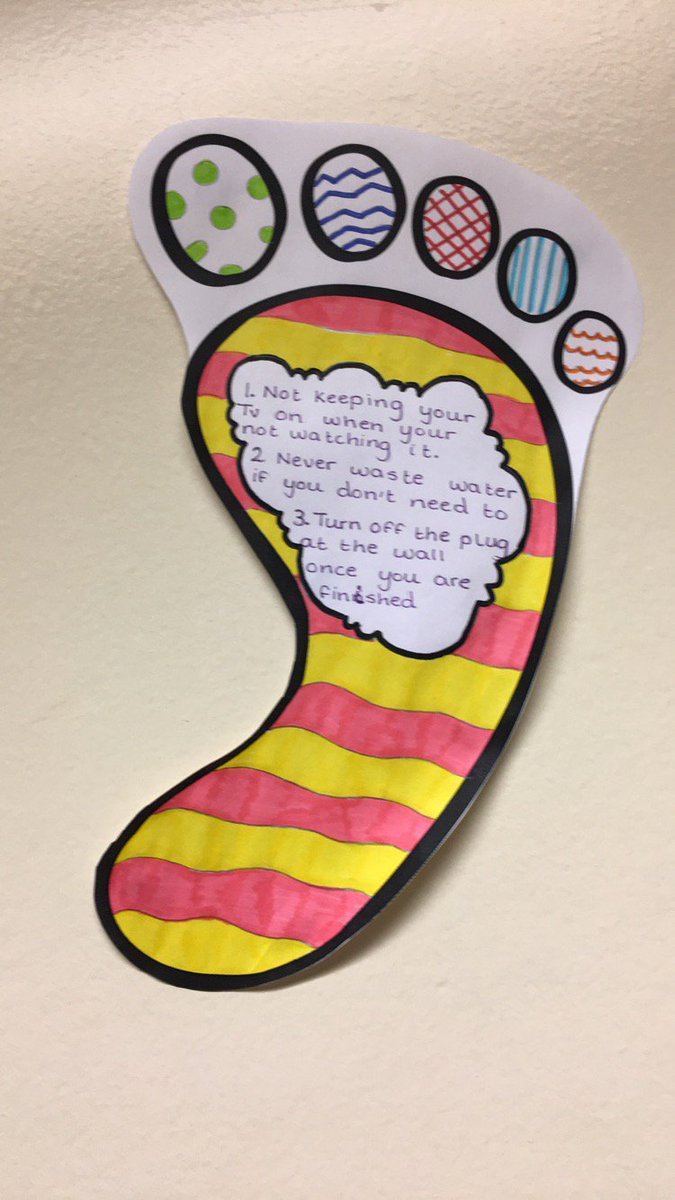 1. Not keeping your
Tv on when your
not watching it.
2 Never waste water
if you don't need to
3. Turn off the plug
at the wall
once you are
finished